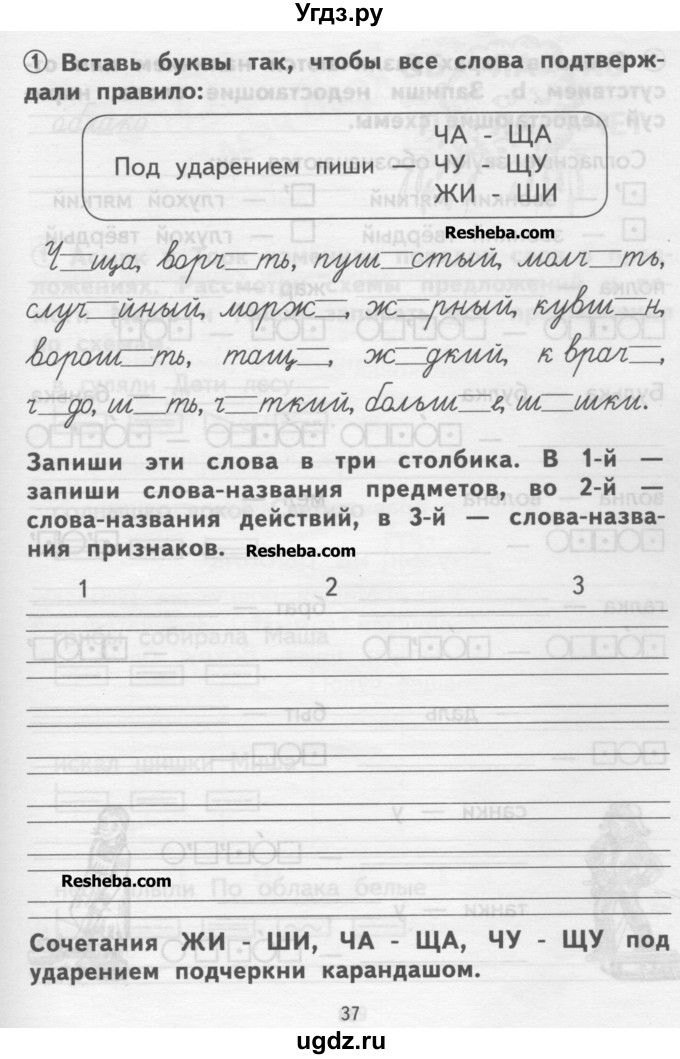 Угдз.ру
① Вставь буквы так, чтобы все слова подтверж-
дали правило:
ЧА - ЩА
Под ударением пиши — ЧУ - ЩУ
ЖИ - ШИ
Resheba.com
Ч__ща, ворч__ть, пуш__стый, молч__ть,
случ__йный, морж__, ж__рный, кувш__н,
ворош__ть, тащ__, ж__дкий, к врач__,
ч__до, ш__ть, ч__ткий, больш__е, ш__шки.
Запиши эти слова в три столбика. В 1-й —
запиши слова-названия предметов, во 2-й —
слова-названия действий, в 3-й — слова-назва-
ния признаков. Resheba.com
1 2 3
Resheba.com
Сочетания ЖИ - ШИ, ЧА - ЩА, ЧУ - ЩУ под
ударением подчеркни карандашом.
37
ugdz.ru